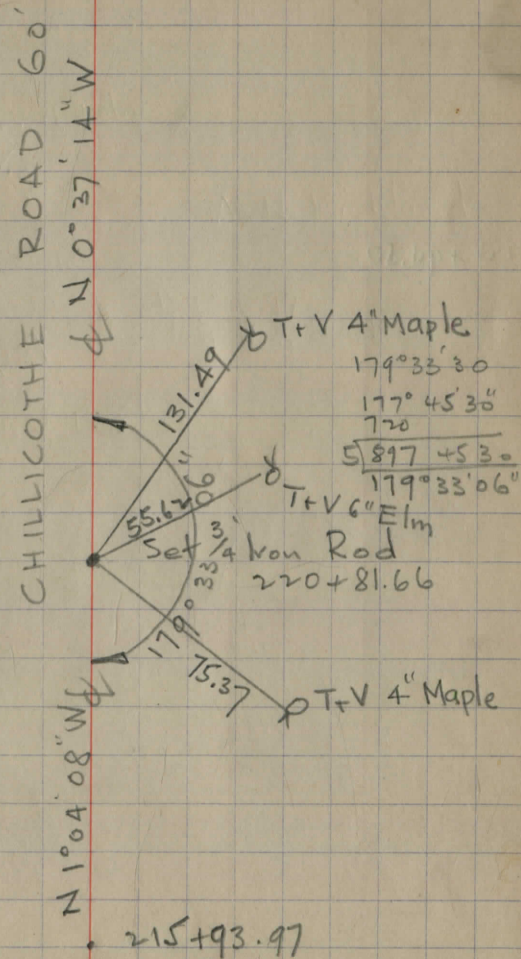 CHILLICOTHE ROAD 60'
N 0° 37' 14" W
℄
T+V 4" Maple
131.49
179° 33' 30
177° 45' 30"
720
5)897 45 30
179° 33' 06"
55.62
T+V 6" Elm
Set 3/4 Iron Rod
220+81.66
179° 33' 06"
75.37
T+V 4" Maple
℄
N 1° 04' 08" W
215+93.97